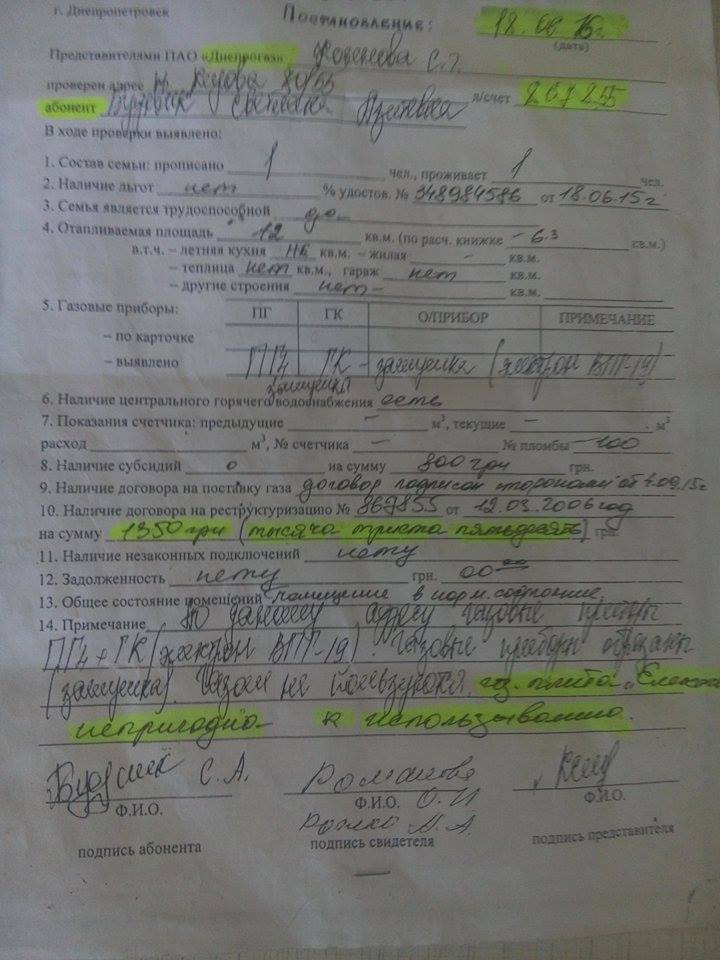 г. Днепропетровск
Постановление:
18.06.15г.
(дата)
Представителями ПАО «Днепрогаз» С.Г.
проверен адрес 80/55
абонент Светлана л/счет 267255
В ходе проверки выявлено:
1. Состав семьи: прописано 1 чел., проживает 1 чел.
2. Наличие льгот нет % удостов. № 348984586 от 18.06.15г
3. Семья является трудоспособной да
4. Отапливаемая площадь 12 кв.м. (по расч. книжке – 6.3 кв.м.)
в.т.ч. – летняя кухня кв.м. – жилая - кв.м.
– теплица нет кв.м., гараж нет кв.м.
– другие строения нет – кв.м.
5. Газовые приборы: ПГ ГК О/ПРИБОР ПРИМЕЧАНИЕ
– по карточке
– выявлено ПГ4 ГК – заглушка (электрон ВПГ-19)
заглушка
6. Наличие центрального горячего водоснабжения есть
7. Показания счетчика: предыдущие – м³, текущие – м³
расход м³, № счетчика – № пломбы – 100
8. Наличие субсидий 0 на сумму 800 грн грн.
9. Наличие договора на поставку газа договор подписан сторонами от
10. Наличие договора на реструктуризацию № 867855 от 12.03.2006 год
на сумму 1350 грн (тысяча триста пятьдесят) грн.
11. Наличие незаконных подключений нету
12. Задолженность нету грн. 00
13. Общее состояние помещений помещение в норм. состояние
14. Примечание По данному адресу газовые приборы
ПГ4 + ГК (электрон ВПГ-19). Газовые приборы обрезаны
(заглушка). Газом не пользуются. газ. плита
непригодна к использованию.
С.А. Романова
Ф.И.О. Ф.И.О. О.И Ф.И.О.
подпись абонента подпись свидетеля подпись представителя